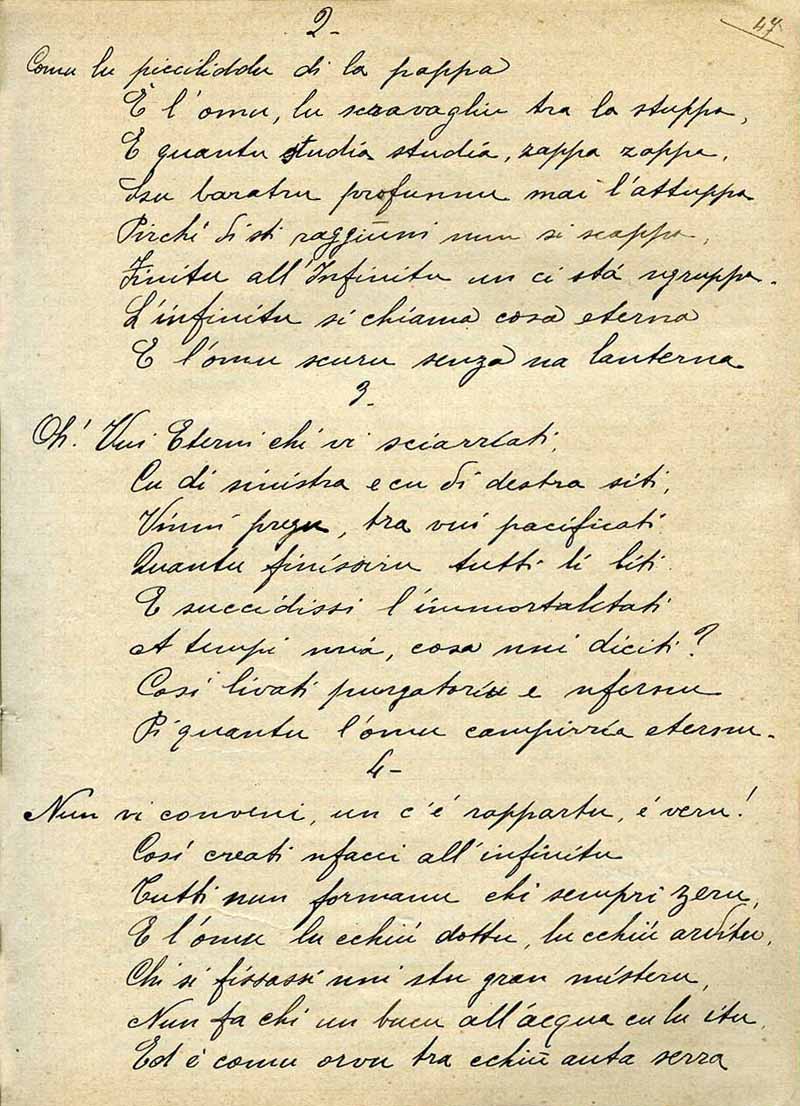 47
2-
Comu lu picciliddu di la pappa
È l'omu, lu scravagliu tra la stuppa,
E quantu studia studia, zappa zappa,
Stu baratru profunnu mai l'attuppa
Pirchì di sti raggiuni nun si scappa,
Finitu all'Infinitu un ci stà ngruppa.
L'infinitu si chiama cosa eterna
E l'omu scuru senza na lanterna
3-
Oh! Vui Eterni chi vi sciarriati,
Cu di sinistra e cu di destra siti,
Vinni pregu, tra vui pacificati
Quantu finisciru tutti li liti
E succidissi l'immortalitati
A tempi mia, cosa nni diciti?
Così livati purgatoriu e nfernu
Pi quantu l'omu campirria eternu.
4-
Nun vi conveni, un c'è rappartu, è veru!
Così creati nfacci all'infinitu
Tutti nun formanu chi sempri zeru,
E l'omu lu cchiù dottu, lu cchiù arditu,
Chi si fissassi nni stu gran misteru,
Nun fa chi un bucu all'acqua cu lu itu,
Ed è comu orvu tra cchiù auta serra